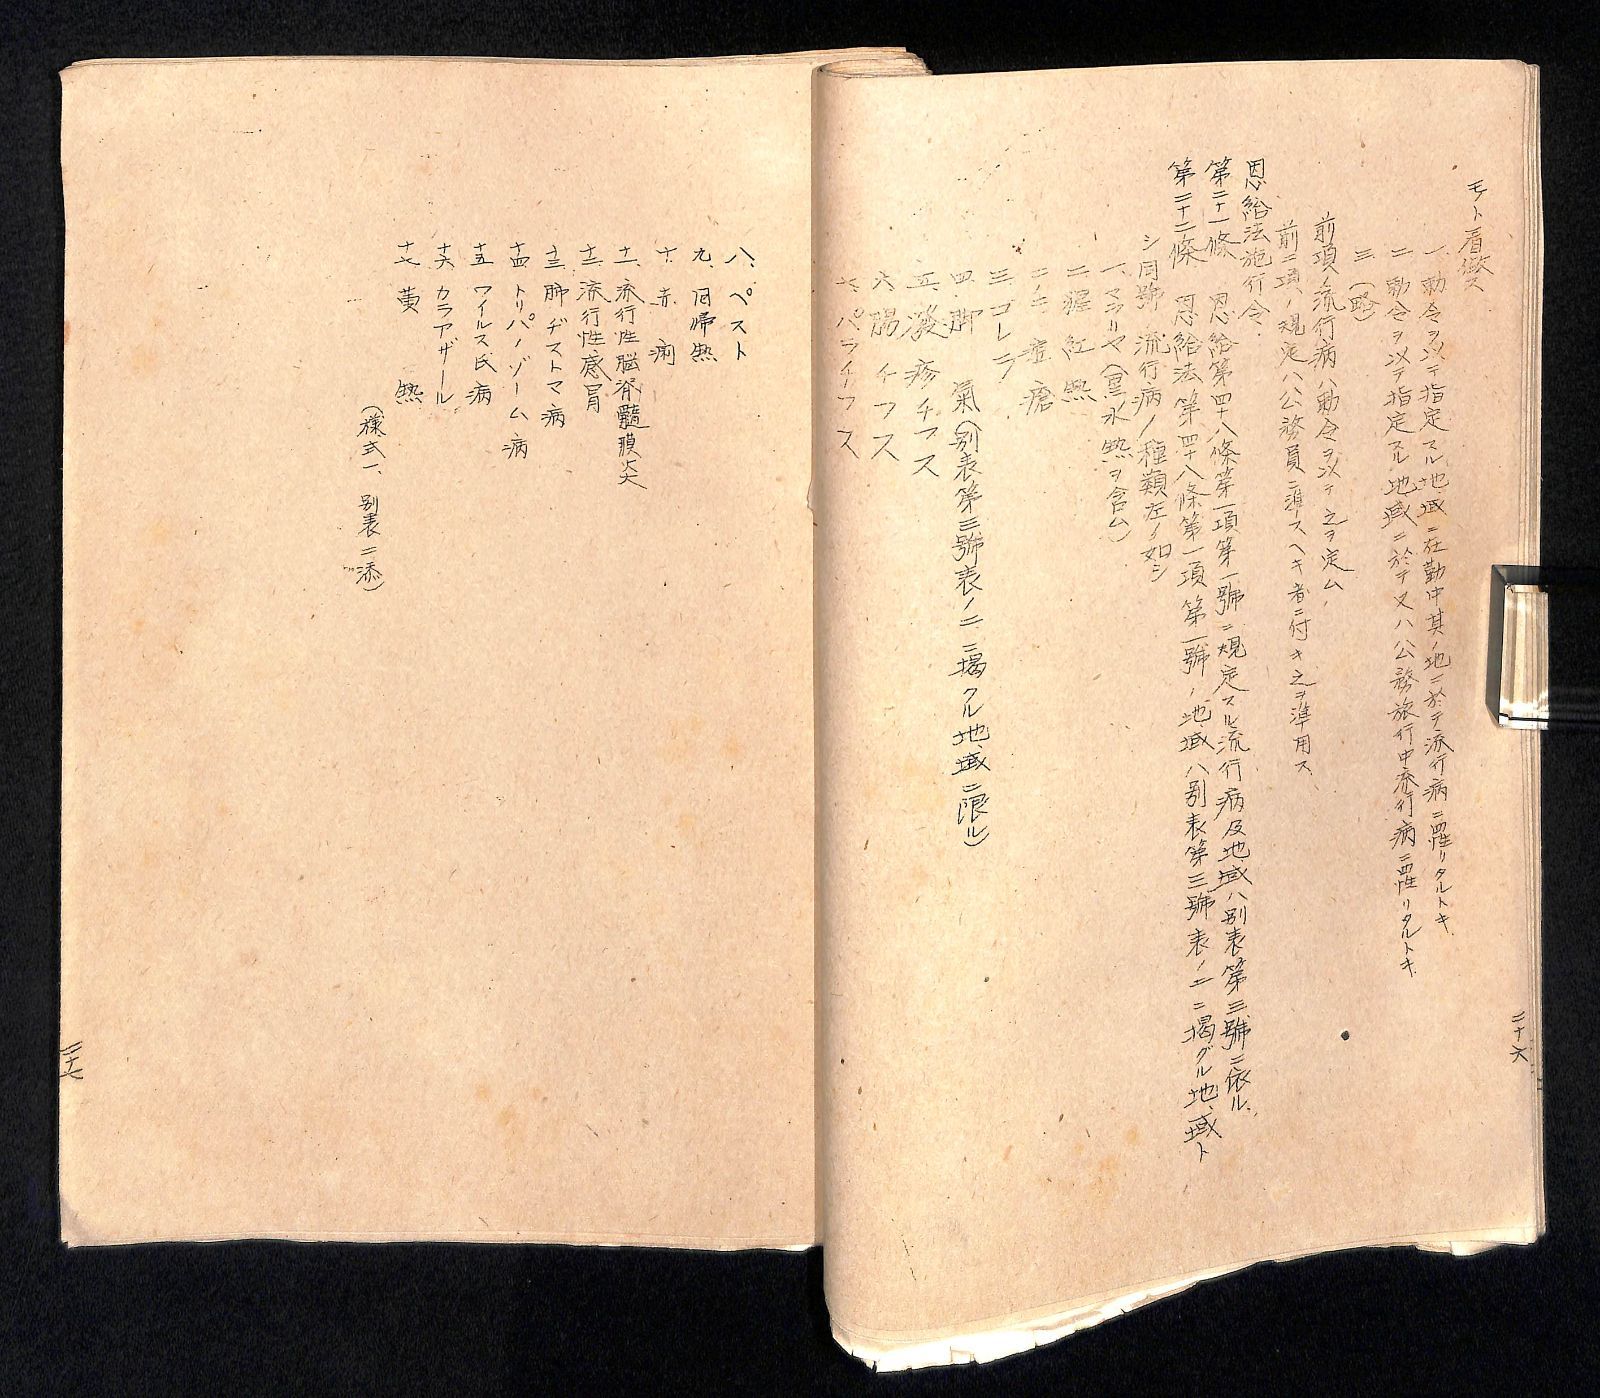 モノト看做ス
一、勅令ヲ以テ指定スル地域ニ在勤中其ノ地ニ於テ流行病ニ罹リタルトキ
二、勅令ヲ以テ指定スル地域ニ於テ又ハ公務旅行中流行病ニ罹リタルトキ
三、（略）
前項ノ流行病ハ勅令ヲ以テ之ヲ定ム
前二項ノ規定ハ公務員ニ準スヘキ者ニ付キ之ヲ準用ス
恩給法施行令
第二十一條　恩給第四十八條第一項第一號ニ規定スル流行病及地域ハ別表第三號ニ依ル
第二十二條　恩給法第四十八條第一項第一號ノ地域ハ別表第三號表ノ二ニ掲グル地域ト
シ同號ノ流行病ノ種類左ノ如シ
一、マラリヤ（黒水熱ヲ含ム）
二、猩紅熱
二ノ二痘瘡
三、コレラ
四、脚　氣（別表第三號表ノ二ニ掲クル地域ニ限ル）
五、發疹チフス
六、腸チフス
七、パラチフス
二十六
八、ペスト
九、回帰熱
十、赤　痢
十一、流行性脳脊髓膜炎
十二、流行性感冒
十三、肺ヂストマ病
十四、トリパノゾーム病
十五、ワイルス氏病
十六、カラアザール
十七、黄　熱
（樣式一、別表ニ添）
二十七